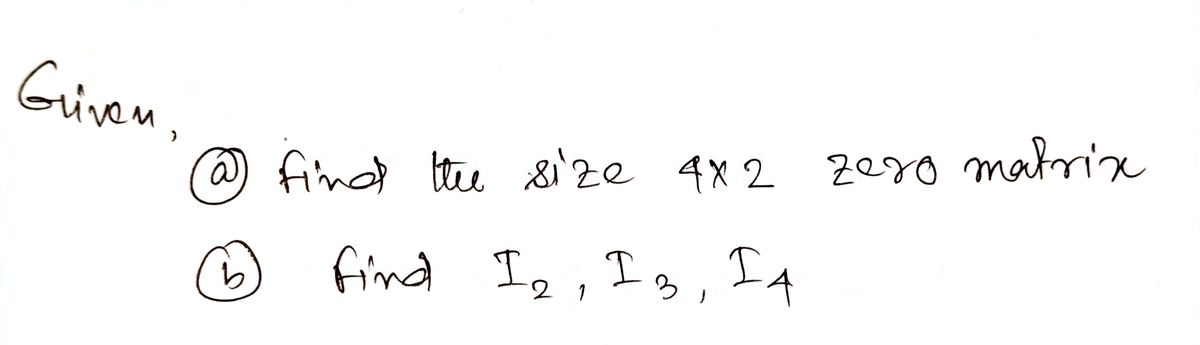 Given,
ⓐ find the size 4x2 zero matrix
ⓑ find I₂, I₃, I₄